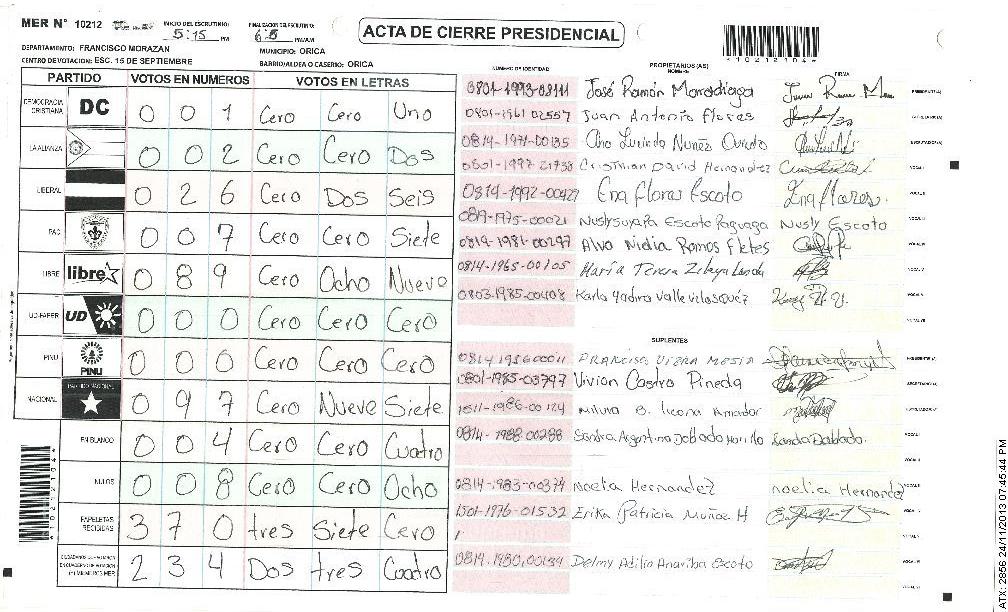 MER N° 10212 INICIO DEL ESCRUTINIO: 5:15 PM FINALIZACION DEL ESCRUTINIO: PM/AM
ACTA DE CIERRE PRESIDENCIAL
*10212104*
DEPARTAMENTO: FRANCISCO MORAZAN MUNICIPIO: ORICA
CENTRO DE VOTACION: ESC. 15 DE SEPTIEMBRE BARRIO/ALDEA O CASERIO: ORICA
PARTIDO VOTOS EN NUMEROS VOTOS EN LETRAS
DEMOCRACIA CRISTIANA DC 0 0 1 Cero Cero Uno
LA ALIANZA 0 0 2 Cero Cero Dos
LIBERAL 0 2 6 Cero Dos Seis
PAC 0 0 7 Cero Cero Siete
LIBRE libre 0 8 9 Cero Ocho Nueve
UD-FAPER UD 0 0 0 Cero Cero Cero
PINU PINU 0 0 0 Cero Cero Cero
NACIONAL PARTIDO NACIONAL 0 9 7 Cero Nueve Siete
EN BLANCO 0 0 4 Cero Cero Cuatro
NULOS 0 0 8 Cero Cero Ocho
PAPELETAS RECIBIDAS 3 7 0 tres Siete Cero
2 3 4 Dos tres Cuatro
NUMERO DE IDENTIDAD PROPIETARIOS (AS) NOMBRE FIRMA
0801-1993-08111 José Ramón Maradiaga PRESIDENTE(A)
0801-1961 02557 Juan Antonio Flores
0814-1971-00135 Ana Lucinda Nuñez Oviedo
0801-1997 21738 Cristhian David Hernandez
0814-1992-00427 Ena Flores Escoto Ena Flores.
0819-1975-00021 Nusly Suyapa Escoto Paguaga Nusly Escoto
0814-1981-00297 Alva Nidia Ramos Fletes
0814-1965-00105 María Teresa Zelaya
0803-1985-00408 Karla Yadira Valle Velasquéz
SUPLENTES
0814 1956 00011
0801-1985-03797 Vivian Castro Pineda
1511-1986-00124 B. Licona Amador
0814-1988-00288 Sandra Argentina Doblado Sandra Doblado.
0814-1983-00374 Noelia Hernandez Noelia Hernandez
1501-1976-01532 Erika Patricia Muñoz H
0814-1980,00139 Delmy Adilia Anariba Escoto
*10212104*
ATX: 2856 24/11/2013 07:45:44 PM